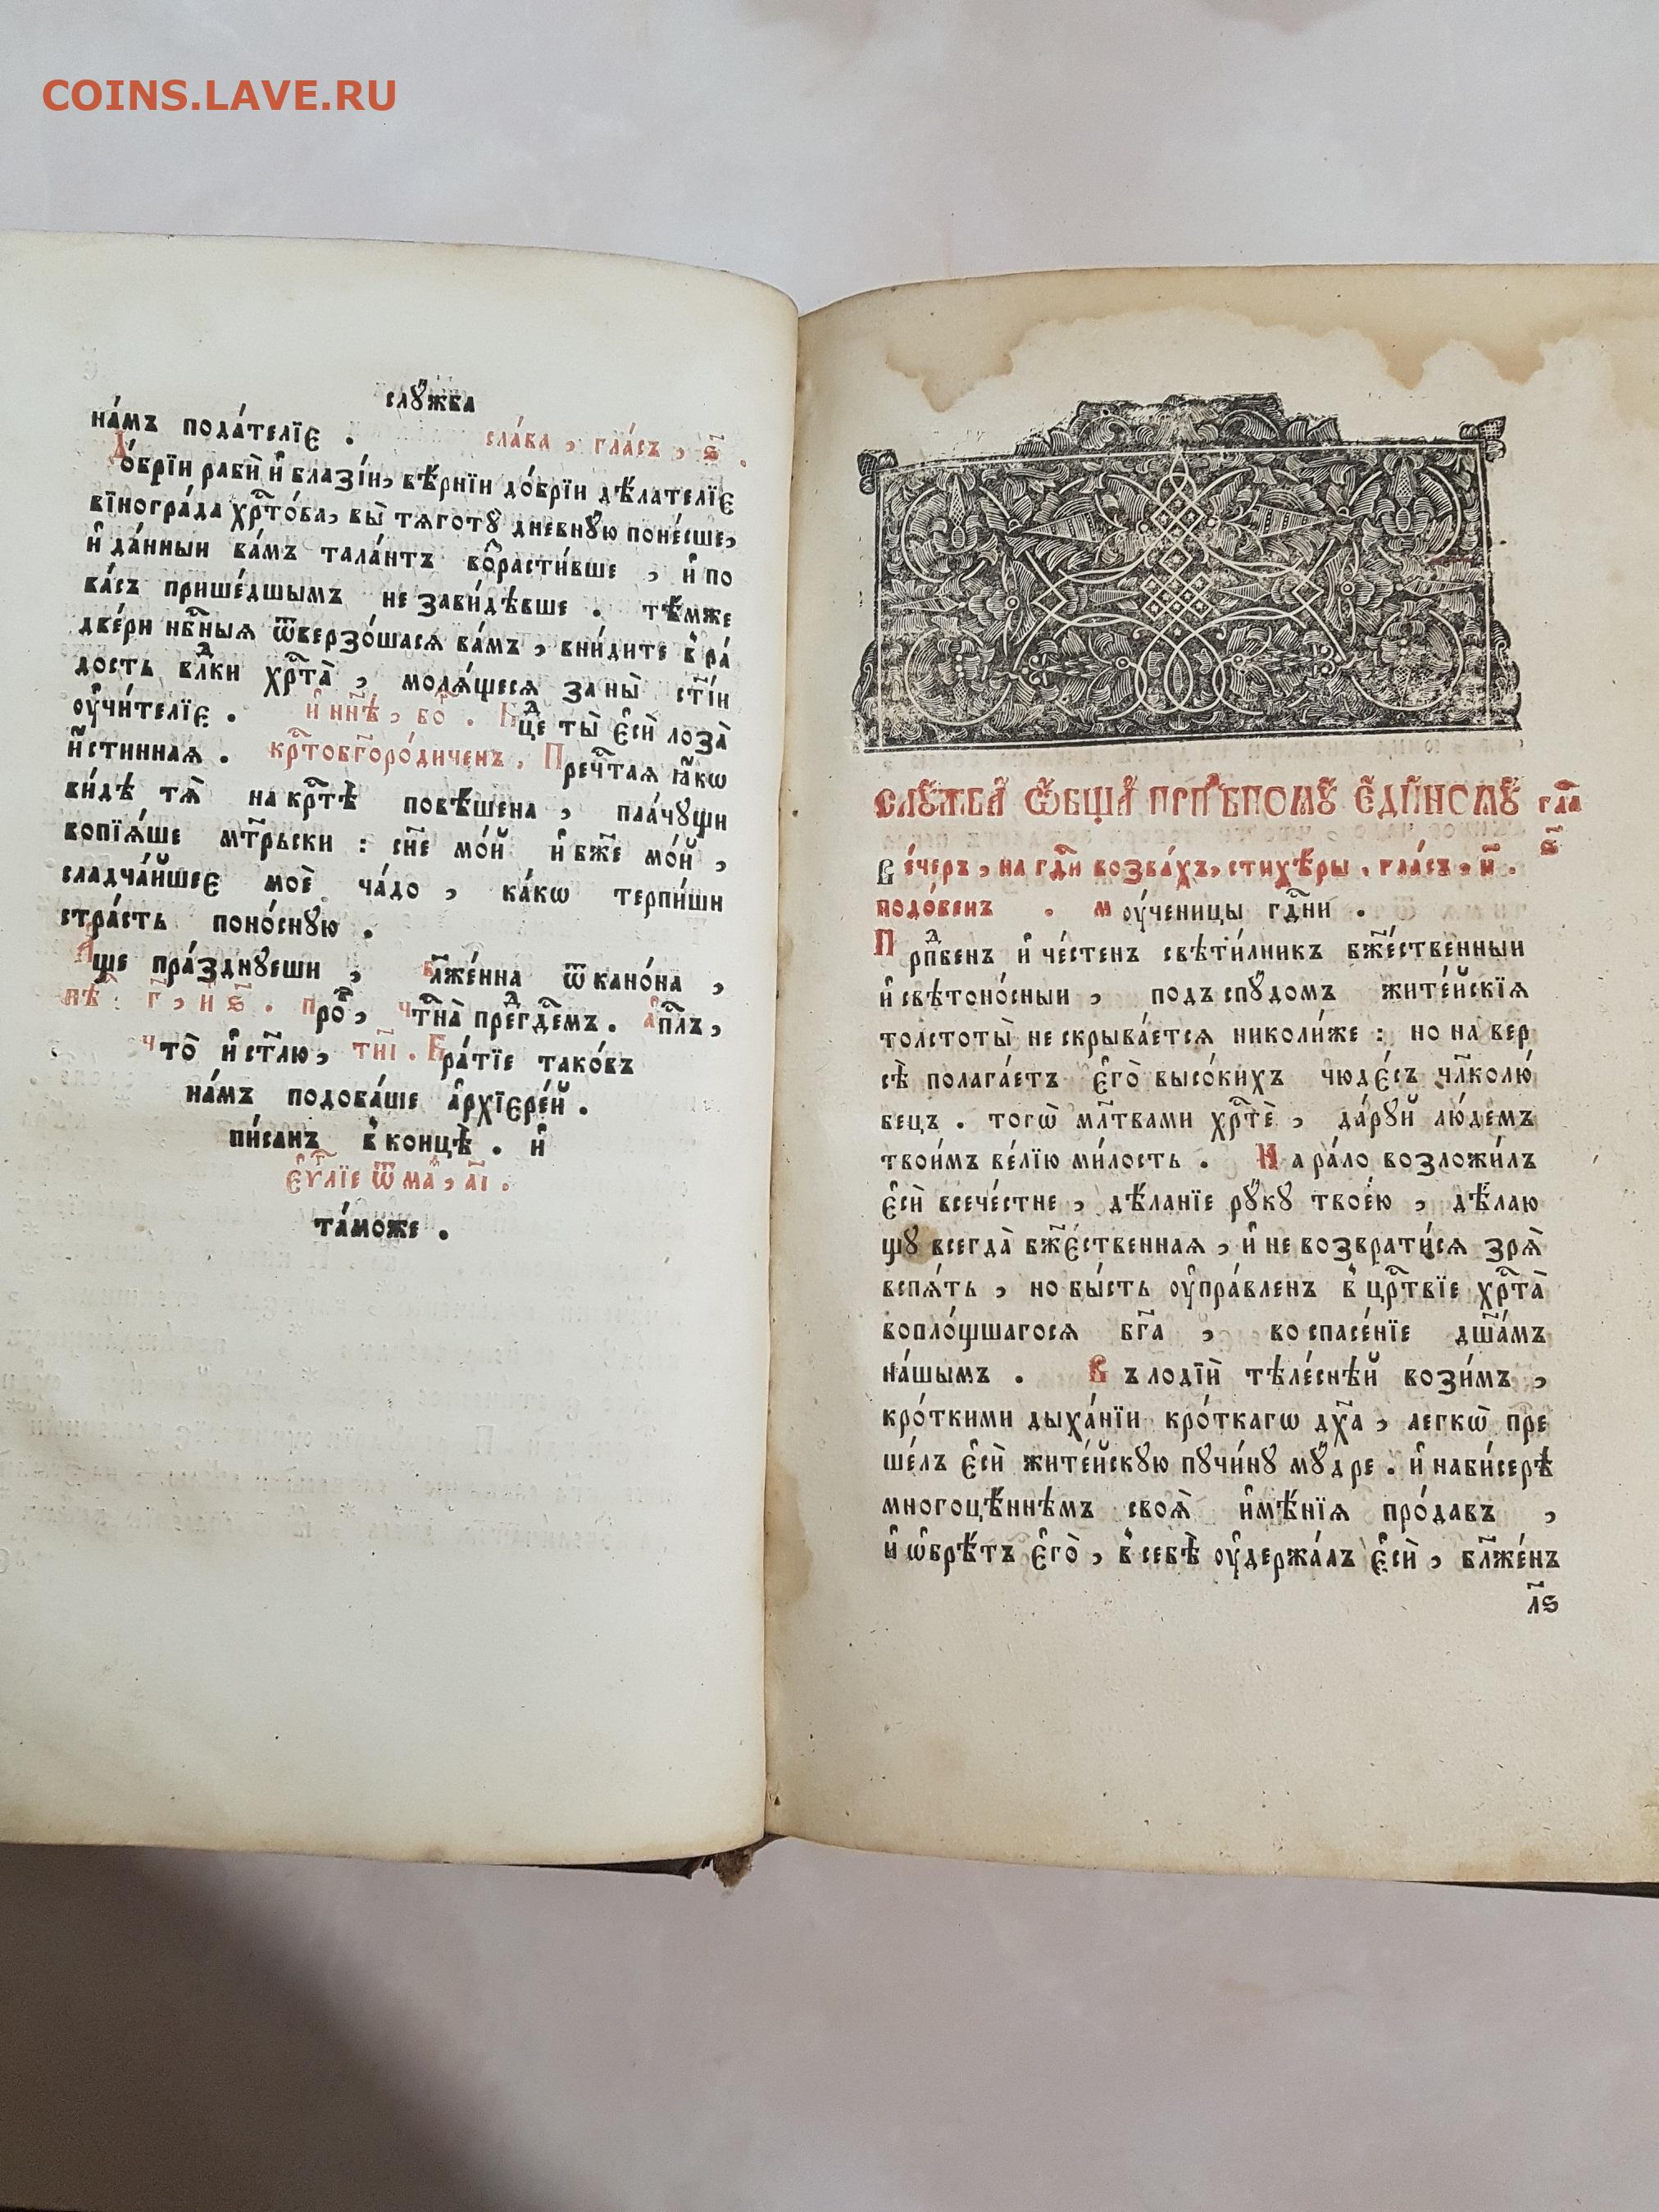 COINS.LAVE.RU
слꙋ́жба
на́мъ пода́телїе . сла́ва , гла́съ , ѕ҃ .
До́брїи раби̑ и҆ блазі́и, вѣ́рнїи до́брїи дѣ́лателїе
вїногра́да хрⷭ҇то́ва, вы̀ тѧготꙋ̀ дневнꙋ́ю поне́сше,
и҆ да́нныи ва́мъ тала́нтъ во̂расти́вше , и҆ по
ва́съ прише́дшымъ не зави́дѣвше . тѣ́мже
две́ри нбⷭ҇ныѧ ѿверзо́шасѧ ва́мъ , вни́дите в̾ ра́
дость влⷣки хрⷭ҇та̀ , молѧ́щесѧ за ны̀ ст҃і́и
ᲂу҆чи́телїе . и҆ нн҃ѣ , бо҃ . Бцⷣе ты̀ є҆сѝ лоза̀
и҆́стиннаѧ . крⷭ҇тобг҃оро́диченъ , Пречⷭ҇таѧ ꙗ҆́кѡ
ви́дѣ тѧ̀ на крⷭ҇тѣ̀ повѣ́шена , пла́чꙋщи
вопїѧ́ше мт҃рьски : сн҃е мо́й и҆ бж҃е мо́й ,
сладча́йшее моѐ ча́до , ка́кѡ терпи́ши
стра́сть поно́снꙋю .
А҆́ще пра́зднꙋеши , блж҃е́нна ѿ кано́на ,
пѣ́ : г҃ , и҆ ѕ҃ . про́ⷦ , чⷭ҇тна̀ преⷣ гдⷭ҇емъ . а҆пⷭ҇лъ ,
что̀ и҆ ст҃лю , тні҃ . Бра́тїе тако́въ
на́мъ подоба́ше а҆рхїере́й .
пи́санъ в̾ концѐ . и҆
є҆ѵⷢ҇лїе ѿ маⷴ , аі҃ .
та́може .
слꙋ́жба ѻ҆́бщаѧ прпⷣбномꙋ є҆ди́номꙋ гла̀
в҃і
Ве́черъ , на гдⷭ҇и возва́хъ , стихѣ́ры , гла́съ , и҃ .
подо́бенъ . м ᲂу҆́ченицы гдⷭ҇ни .
Прпⷣбенъ и҆ че́стенъ свѣти́лникъ бжⷭ҇е́ственныи
и҆ свѣтоно́сныи , подъ спꙋ́домъ жите́йскїѧ
толстоты̀ не скрыва́етсѧ николи́же : но на вер
сѣ̀ полага́етъ є҆го̀ высо́кихъ чюде́съ чл҃колю́
бецъ . тогѡ̀ мл҃твами хрⷭ҇тѐ , да́рꙋй лю́демъ
твои́мъ ве́лїю ми́лость . На ра́ло возложи́лъ
є҆сѝ всече́стне , дѣ́ланїе рꙋ́кꙋ твое́ю , дѣ́лаю
щꙋ всегда̀ бжⷭ҇е́ственнаѧ , и҆ не возврати́сѧ зрѧ̀
вспѧ́ть , но бы́сть ᲂу҆пра́вленъ в̾ црⷭ҇твїе хрⷭ҇та̀
вопло́щшагосѧ бг҃а , во спасе́нїе дш҃а́мъ
на́шымъ . Въ лодїѝ тѣле́снѣй вози́мъ ,
кро́ткими дыха́нїи кро́ткагѡ дх҃а , легкѡ̀ пре
ше́лъ є҆сѝ жите́йскꙋю пꙋчи́нꙋ мꙋ́дре . и҆ на би́серѣ
многоцѣ́ннѣмъ своѧ̀ и҆мѣ́нїѧ про́давъ ,
и҆ ѡ҆брѣ́тъ є҆го̀ , в̾ себѣ̀ ᲂу҆держа́лъ є҆сѝ , блж҃е́нъ
л҃ѕ